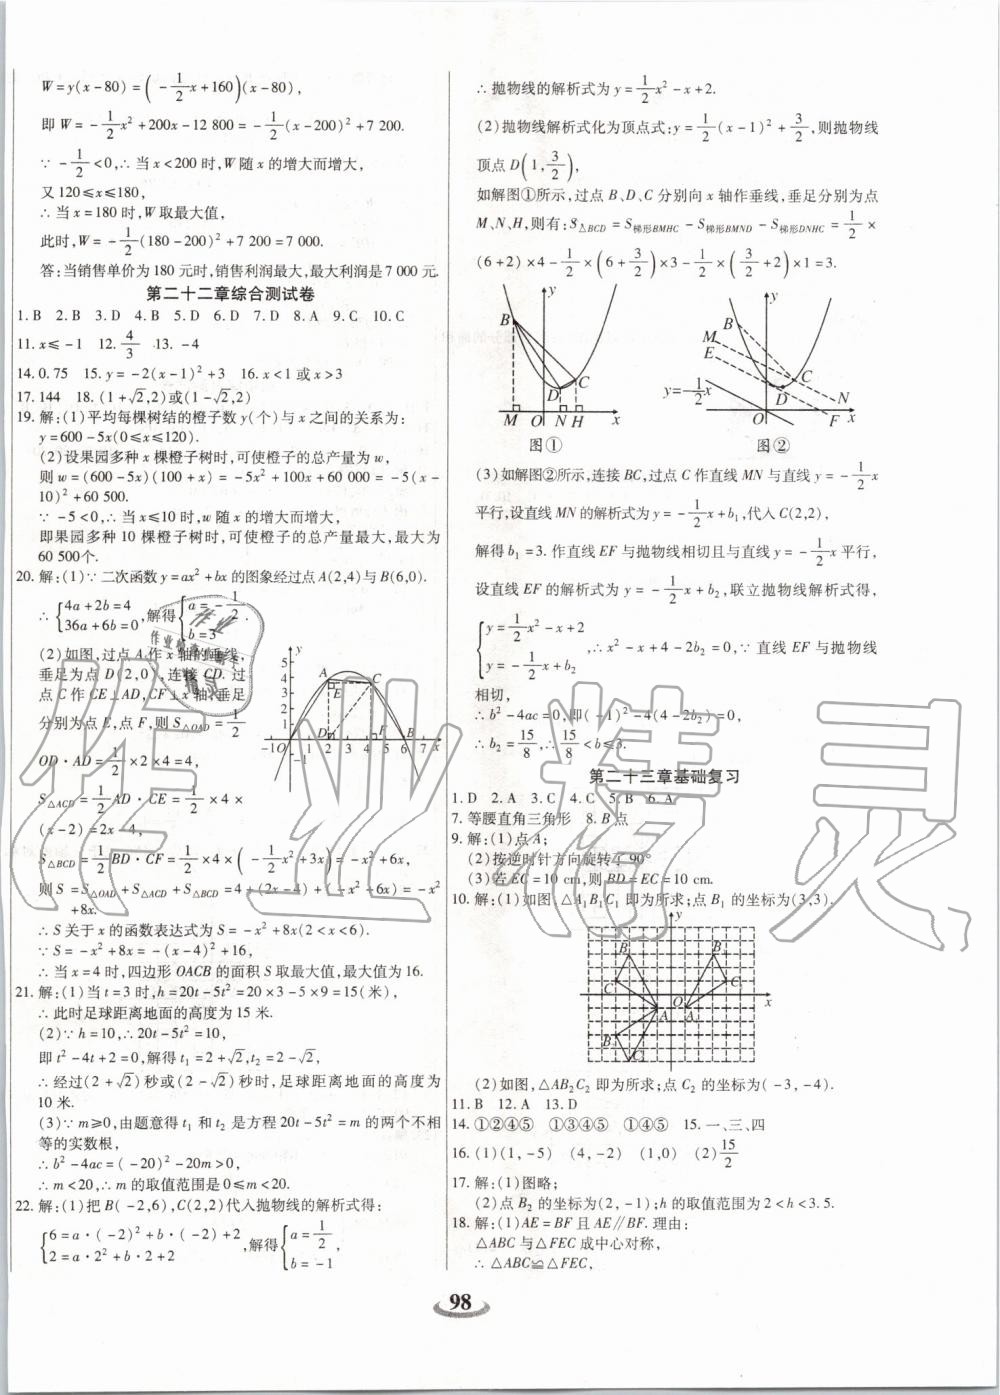 W=y(x-80)=(-1/2x+160)(x-80),
即 W=-1/2x²+200x-12 800=-1/2(x-200)²+7 200.
∵ -1/2<0,∴ 当 x<200 时,W 随 x 的增大而增大,
又 120≤x≤180,
∴ 当 x=180 时,W 取最大值,
此时,W=-1/2(180-200)²+7 200=7 000.
答:当销售单价为 180 元时,销售利润最大,最大利润是 7 000 元.
第二十二章综合测试卷
1. B 2. B 3. D 4. B 5. D 6. D 7. D 8. A 9. C 10. C
11. x≤-1 12. 4/3 13. -4
14. 0.75 15. y=-2(x-1)²+3 16. x<1 或 x>3
17. 144 18. (1+√2,2)或(1-√2,2)
19. 解:(1)平均每棵树结的橙子数 y(个)与 x 之间的关系为:
y=600-5x(0≤x≤120).
(2)设果园多种 x 棵橙子树时,可使橙子的总产量为 w,
则 w=(600-5x)(100+x)=-5x²+100x+60 000=-5(x-
10)²+60 500.
∵ -5<0,∴ 当 x≤10 时,w 随 x 的增大而增大,
即果园多种 10 棵橙子树时,可使橙子的总产量最大,最大为
60 500个.
20. 解:(1)∵ 二次函数 y=ax²+bx 的图象经过点 A(2,4)与 B(6,0).
∴ {4a+2b=4 36a+6b=0,解得{a=-1/2 b=3.
(2)如图,过点 A 作 x 轴的垂线,
垂足为点 D(2,0),连接 CD. 过
点 C 作 CE⊥AD,CF⊥x 轴,垂足
分别为点 E,点 F,则 S△OAD=1/2
OD·AD=1/2×2×4=4,
S△ACD=1/2AD·CE=1/2×4×
(x-2)=2x-4,
S△BCD=1/2BD·CF=1/2×4×(-1/2x²+3x)=-x²+6x,
则 S=S△OAD+S△ACD+S△BCD=4+(2x-4)+(-x²+6x)=-x²
+8x.
∴ S关于 x 的函数表达式为 S=-x²+8x(2<x<6).
∵ S=-x²+8x=-(x-4)²+16,
∴ 当 x=4 时,四边形 OACB 的面积 S 取最大值,最大值为 16.
21. 解:(1)当 t=3 时,h=20t-5t²=20×3-5×9=15(米),
∴ 此时足球距离地面的高度为 15 米.
(2)∵ h=10,∴ 20t-5t²=10,
即 t²-4t+2=0,解得 t₁=2+√2,t₂=2-√2,
∴ 经过(2+√2)秒或(2-√2)秒时,足球距离地面的高度为
10 米.
(3)∵ m≥0,由题意得 t₁ 和 t₂ 是方程 20t-5t²=m 的两个不相
等的实数根,
∴ b²-4ac=(-20)²-20m>0,
∴ m<20,∴ m 的取值范围是 0≤m<20.
22. 解:(1)把 B(-2,6),C(2,2)代入抛物线的解析式得:
{6=a·(-2)²+b·(-2)+2 2=a·2²+b·2+2,解得{a=1/2, b=-1
∴ 抛物线的解析式为 y=1/2x²-x+2.
(2)抛物线解析式化为顶点式:y=1/2(x-1)²+3/2,则抛物线
顶点 D(1,3/2),
如解图①所示,过点 B、D、C 分别向 x 轴作垂线,垂足分别为点
M、N、H,则有:S△BCD=S梯形BMHC-S梯形BMND-S梯形DNHC=1/2×
(6+2)×4-1/2×(6+3/2)×3-1/2×(3/2+2)×1=3.
y B C D M O N H x
图①
y B M E C D y=-1/2x N O F x
图②
(3)如解图②所示,连接 BC,过点 C 作直线 MN 与直线 y=-1/2x
平行,设直线 MN 的解析式为 y=-1/2x+b₁,代入 C(2,2),
解得 b₁=3. 作直线 EF 与抛物线相切且与直线 y=-1/2x 平行,
设直线 EF 的解析式为 y=-1/2x+b₂,联立抛物线解析式得,
{y=1/2x²-x+2 y=-1/2x+b₂,∴ x²-x+4-2b₂=0,∵ 直线 EF 与抛物线
相切,
∴ b²-4ac=0,即(-1)²-4(4-2b₂)=0,
∴ b₂=15/8,∴ 15/8<b≤3.
第二十三章基础复习
1. D 2. A 3. C 4. C 5. B 6. A
7. 等腰直角三角形 8. B 点
9. 解:(1)点 A;
(2)按逆时针方向旋转了 90°
(3)若 EC=10 cm,则 BD=EC=10 cm.
10. 解:(1)如图,△A₁B₁C₁ 即为所求;点 B₁ 的坐标为(3,3).
(2)如图,△AB₂C₂ 即为所求;点 C₂ 的坐标为(-3,-4).
11. B 12. A 13. D
14. ①②④⑤ ①③④⑤ ①②④⑤ 15. 一、三、四
16. (1)(1,-5) (4,-2) (1,0) (2)15/2
17. 解:(1)图略;
(2)点 B₂ 的坐标为(2,-1);h 的取值范围为 2<h<3.5.
18. 解:(1)AE=BF 且 AE∥BF. 理由:
△ABC 与△FEC 成中心对称,
∴ △ABC≌△FEC,
98
作业精灵